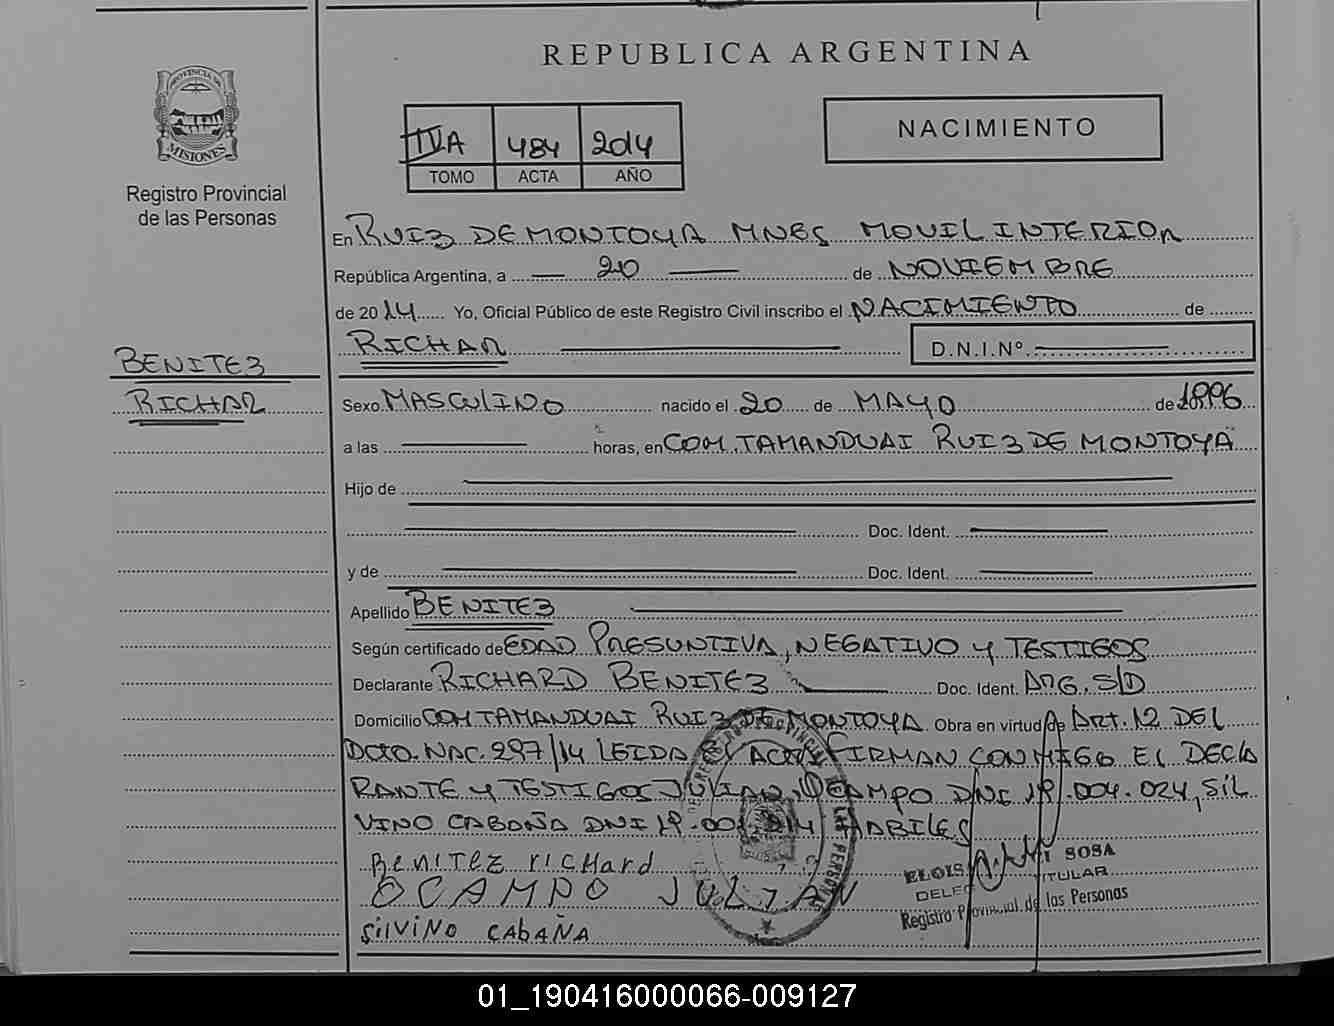 REPUBLICA ARGENTINA
PROVINCIA DE
MISIONES
Registro Provincial
de las Personas
IVA 484 2014
TOMO ACTA AÑO
NACIMIENTO
En RUIZ DE MONTOYA MNES MOVIL INTERIOR
República Argentina, a 20 de NOVIEMBRE
de 2014 Yo, Oficial Público de este Registro Civil inscribo el NACIMIENTO de
RICHAR D.N.I.Nº.
BENITEZ
RICHAR
Sexo MASCULINO nacido el 20 de MAYO de 1996
a las horas, en COM. TAMANDUAI RUIZ DE MONTOYA
Hijo de
Doc. Ident.
y de Doc. Ident.
Apellido BENITEZ
Según certificado de EDAD PRESUNTIVA, NEGATIVO Y TESTIGOS
Declarante RICHARD BENITEZ Doc. Ident. ARG. S/D
Domicilio COM TAMANDUAI RUIZ DE MONTOYA. Obra en virtud de ART. 12 DEL
DCTO. NAC. 297/14 LEIDA EL ACTA FIRMAN CONMIGO EL DECLA
RANTE Y TESTIGOS JULIAN OCAMPO DNI 18.004.024, SIL
VINO CABAÑA DNI HABILES
BENITEZ RICHARD
OCAMPO JULIAN
SILVINO CABAÑA
SOSA
TITULAR
Registro Provincial de las Personas
01_190416000066-009127